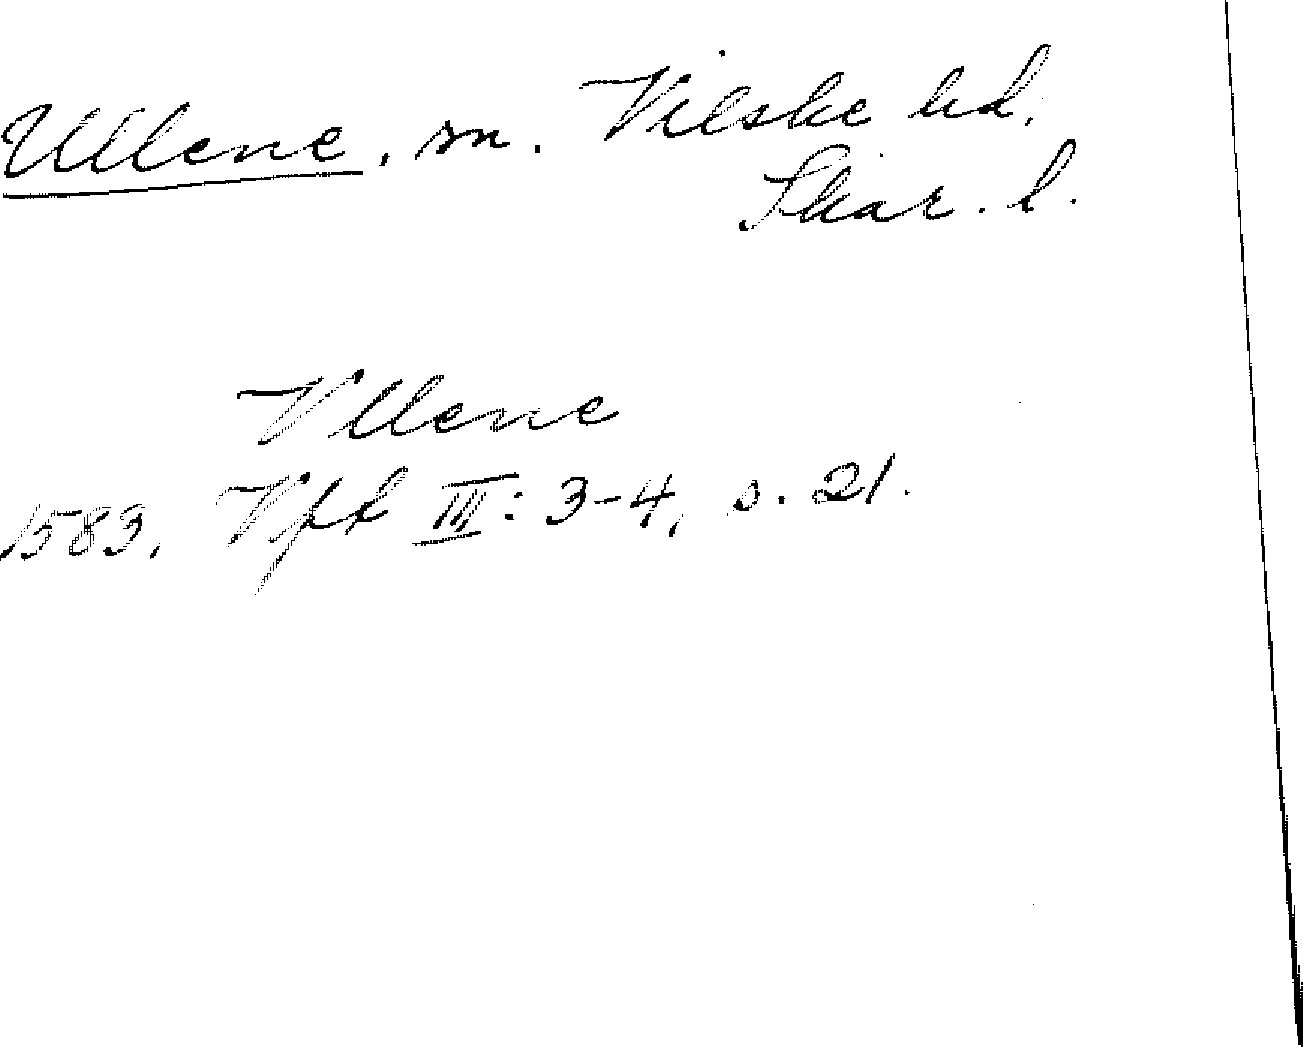 Ullene, sn. Vilske hd,
Skar. l.
Vllene
1583. Vfk III: 3-4, s. 21.